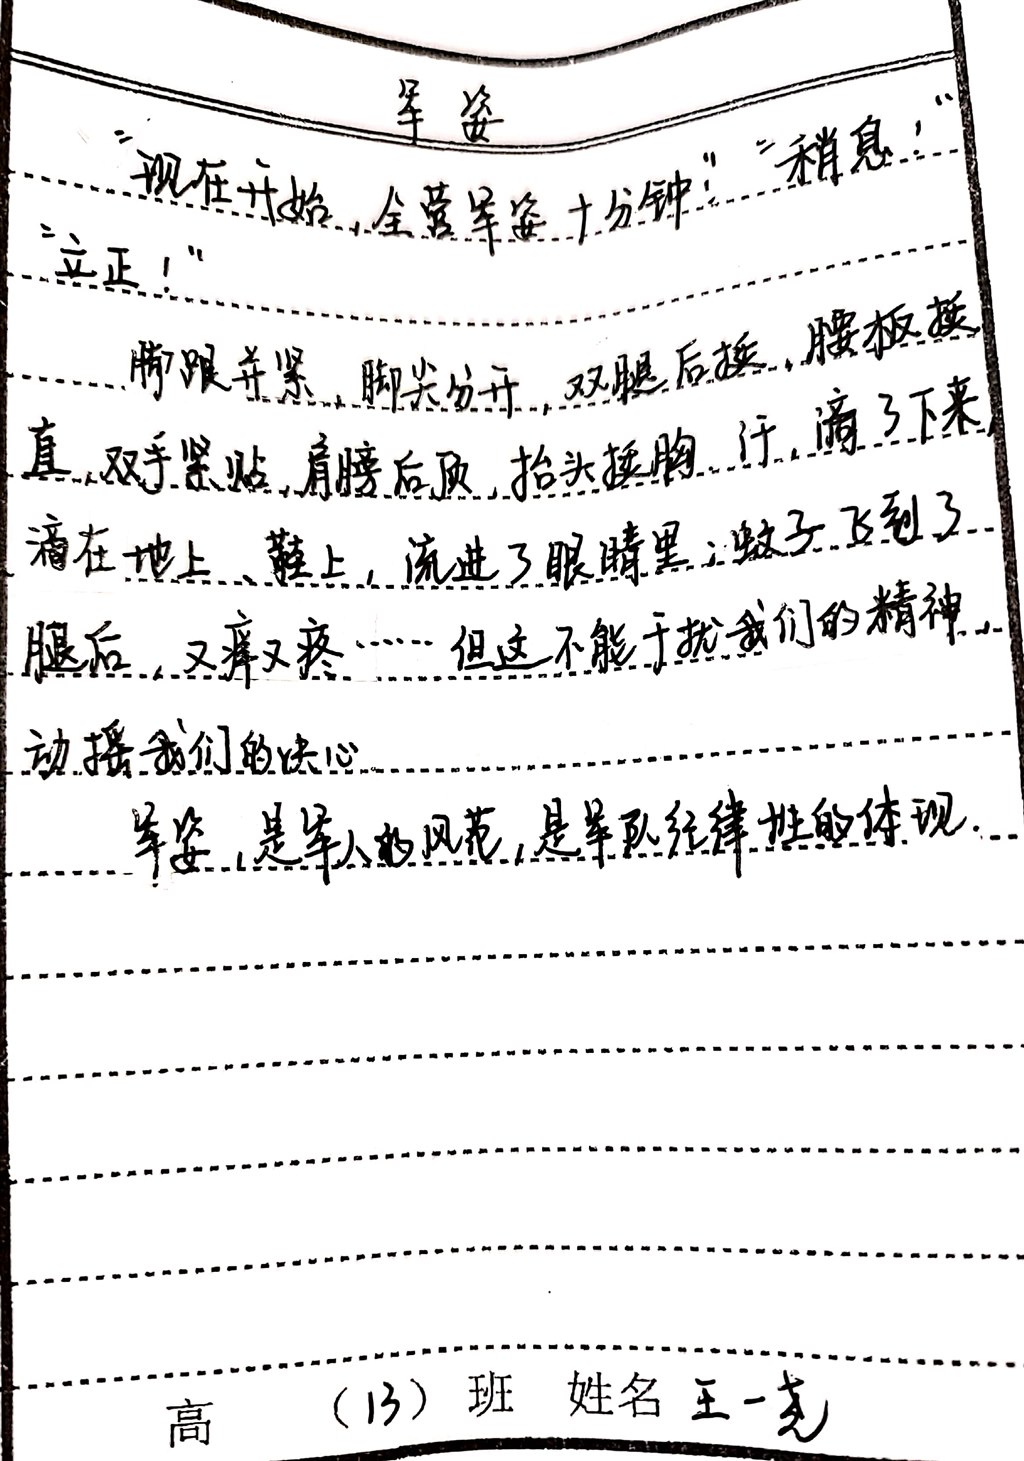 军姿
“现在开始，全营军姿十分钟！”“稍息！”
“立正！”
脚跟并紧，脚尖分开，双腿后挺，腰板挺
直，双手紧贴，肩膀后顶，抬头挺胸。汗，滴了下来，
滴在地上、鞋上，流进了眼睛里；蚊子飞到了
腿后，又痒又疼……但这不能干扰我们的精神，
动摇我们的决心。
军姿，是军人的风范，是军队纪律性的体现.
高 （13）班 姓名 王一尧